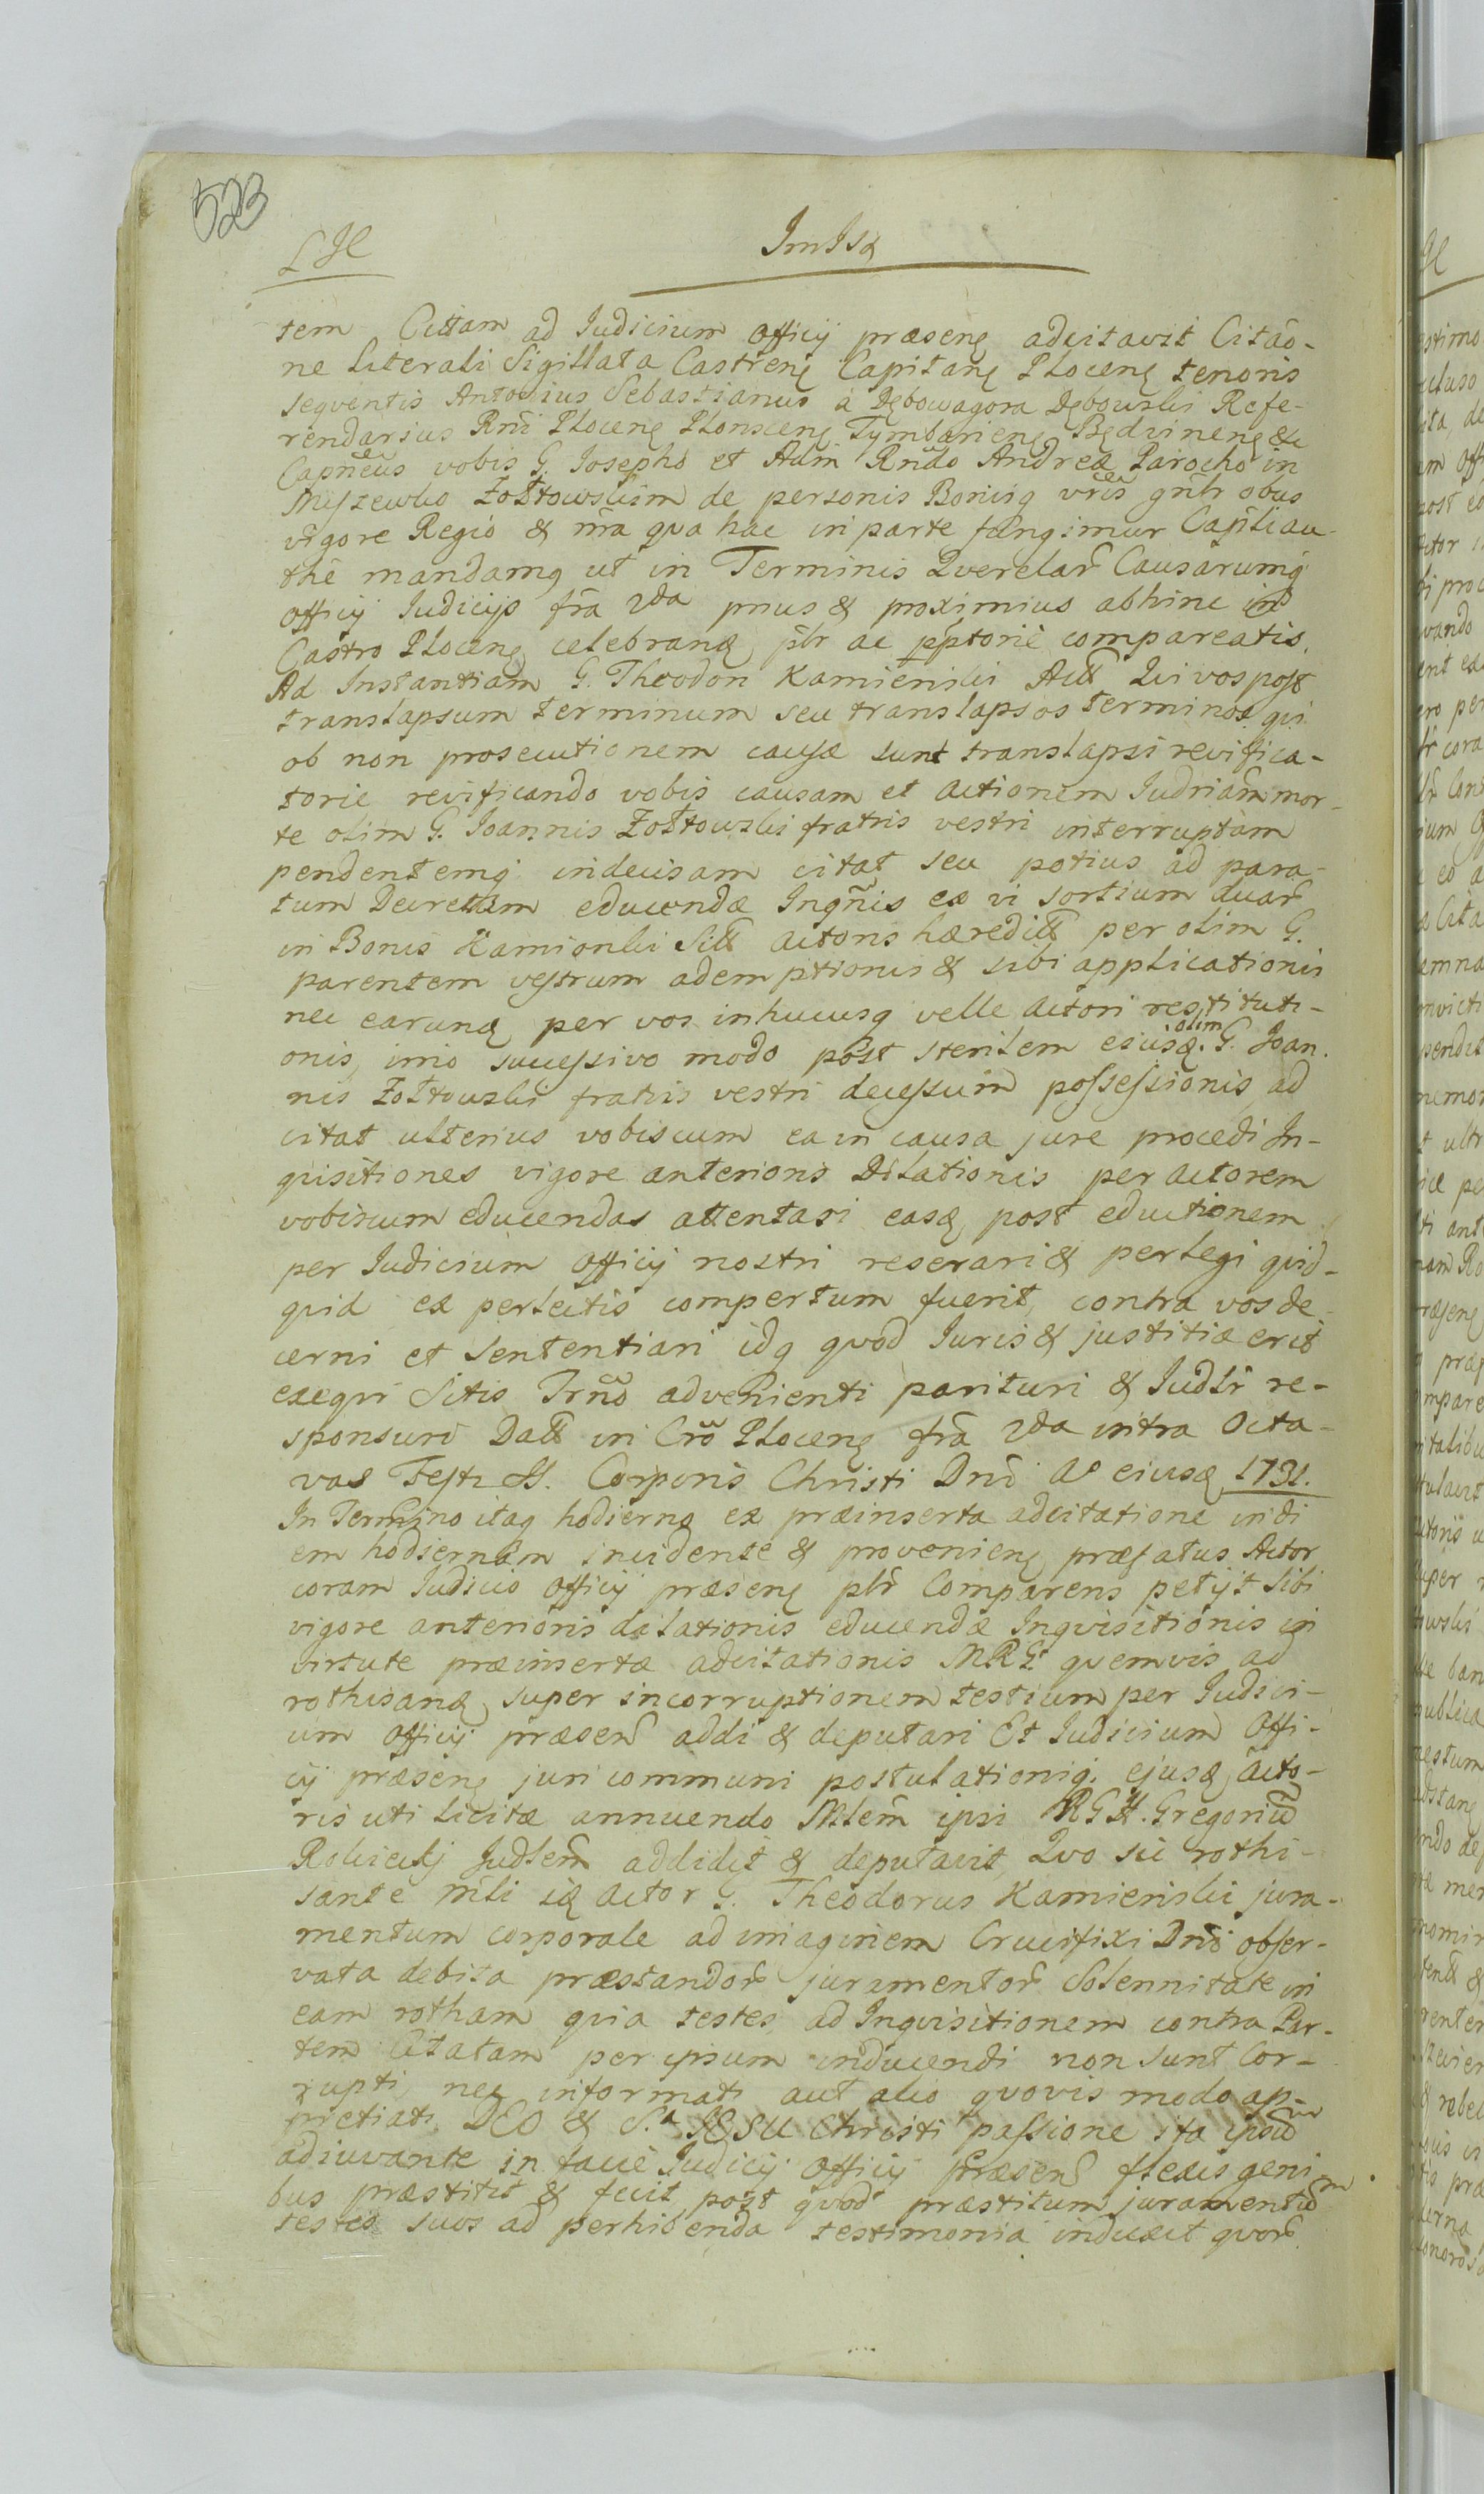 523
LJC ImJsq
tem Cittam ad Iudicium officij præsenq adcitavit Citao-
ne literali Sigillata Castrenq Capitanq Plocenq tenoris
seqventis Antonius Sebastianus à Dębowagora Dębowski Refe-
rendarius Rnĩ Plocenq Plonscenq Tymbarienq Będzinenq &c
Capñeus vobis G. Iosepho et Adm Rndo Andreæ Parocho in
Miszewko Zołtowskim de personis Bonisq vris gnlr obus
vigore Regio & nra qva hac in parte fungimur Capli au-
the mandamq ut in Terminis Qverelar Causarumq
officij Iudicijs fra 2da pmus & proximius abhinc in
Castro Plocenq celebranq plr ac pptorie compareatis.
Ad Instantiam G. Theodori Kamienski Actt Qui vos post
translapsum terminum seu translapsos terminos qvi
ob non prosecutionem causæ sunt translapsi revifica-
torie revificando vobis causam et actionem Iudriam mor-
te olim G. Ioannis Zołtowski fratris vestri interruptam
pendentemq indecisam citat seu potius ad para-
tum Decretum educendæ Inqnis ex vi sortium duar
in Bonis Kamionki Sitt Actoris hæreditt per olim G.
parentem vestrum ademptionis & sibi applicationis
nec earunq per vos inhucusq velle Actori restituti-
onis, imo successivo modo post sterilem ejusq. olim G. Joan-
nis Zołtowski fratris vestri decessum possessionis, ad
citat ulterius vobiscum ea in causa jure procedi In-
qvisitiones vigore anterioris Dilationis per actorem
vobiscum educendas attentari easq post eductionem
per Iudicium officij nostri reserari & perlegi qvid-
qvid ex perlectis compertum fuerit, contra vos de-
cerni et sententiari idq qvod Iuris & justitiæ erit
exeqvi Sitis Trno advenienti parituri & Iudlr re-
sponsuri Datt in Cro Plocenq fra 2da intra Octa-
vas Festi SS. Corporis Christi Dni A° ejusq 1731.
In Termino itaq hodierno ex præinserta adcitatione in di
em hodiernam incidente & provenienq præfatus Actor
coram Iudicio officij præsenq plr Comparens petijt sibi
vigore anterioris dilationis educendæ Inqvisitionis in
virtute præinsertæ adcitationis MRG qvemvis ad
rothisanq super incorruptionem testium per Iudici-
um officij præsen addi & deputari Et Iudicium Offi-
cij præsenq juri communi postulationiq. ejusq Acto-
ris uti licitæ annuendo Mlem ipsi RGH. Gregoriu
Rolicki Judlem addidit & deputavit, Qvo sic rothi-
sante mli iq actor G. Theodorus Kamienski jura-
mentum corporale ad imaginem Crucifixi Dni obser-
vata debita præstandor juramentor Solennitate in
eam rotham qvia testes ad Inqvisitionem contra Par-
tem Citatam per ipsum inducendi non sunt Cor-
rupti, nec informati aut alio qvovis modo ap-
pretiati. DEO & Sa. JESU Christi passione ita ipsum
adiuvante in facie Iudicij officij præsen flexis geni
bus præstitit & fecit, post qvod præstitum juramentum
testes suos ad perhibenda testimonia induxit qvor